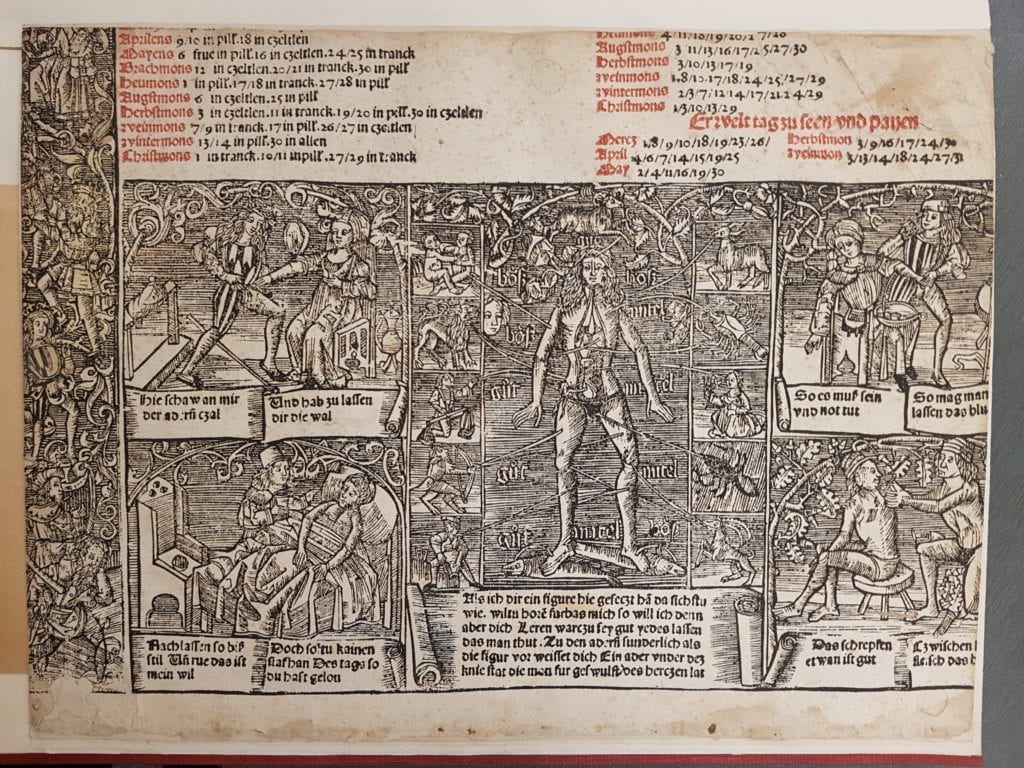 Aprilens 9/10 in pill. 18 in czeltlen
Mayens 6 frue in pill. 16 in czeltlen. 24/25 in tranck
Brachmons 12 in czeltlen. 20/21 in tranck. 30 in pill
Heumons 1 in pill. 17/18 in tranck. 27/28 in pill
Augstmons 6 in czeltlen. 25 in pill
Herbstmons 3 in czeltlen. 11 in tranck. 19/20 in pill. 30 in czeltlen
Weinmons 7/9 in tranck. 17 in pill. 26/27 in czeltlen
Wintermons 13/14 in pill. 30 in allen
Christmons 1 in tranck. 10/11 in pill. 27/29 in tranck
Heumons 4/11/18/19/26/27/28
Augstmons 3/11/13/16/17/25/27/30
Herbstmons 3/10/13/17/19
Weinmons 1/8/10/17/18/24/25/27/29
Wintermons 2/3/7/12/14/17/21/24/29
Christmons 1/3/10/13/29
Erwelt tag zu seen vnd pauen
Mercz 1/8/9/10/18/19/23/26/
April 4/6/7/14/15/19/25
May 2/4/11/16/19/30
Herbstmon 3/9/16/17/24/30
Weinmon 3/13/14/18/24/27/31
gut
böß
böß
böß
mitel
gůt
mitel
gůt
mitel
gůt
mitel
böß
Hie schaw an mir
der adrñ czal
Vnd hab zu lassen
dir die wal
So es muß sein
vnd not tut
So mag man
lassen das blu
Nach lassen so biß
stil Vñ rue das ist
mein wil
Doch soltu kainen
slaf han Des tags so
du hast gelon
Als ich dir ein figure hie geseczt hã da sichstu
wie. wiltu horẽ furbas mich so will ich denn
aber dich Leren warczu sey gut yedes lassen
das man thut. Zu den adrñ sunderlich als
die figur vor weisset dich Ein ader vnder dez
knie stat die mon fur geswulst des herczen lat
Das schrepffen
etwan ist gut
Czwischen